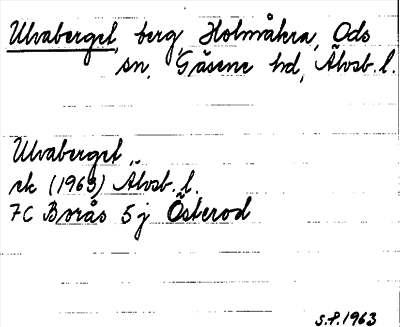 Ulvaberget, berg, Holmåkra, Ods
sn, Gäsene hd, Älvsb. l.
Ulvaberget
ek (1963) Älvsb. l.
7C Borås 5j Österod
S.P. 1963